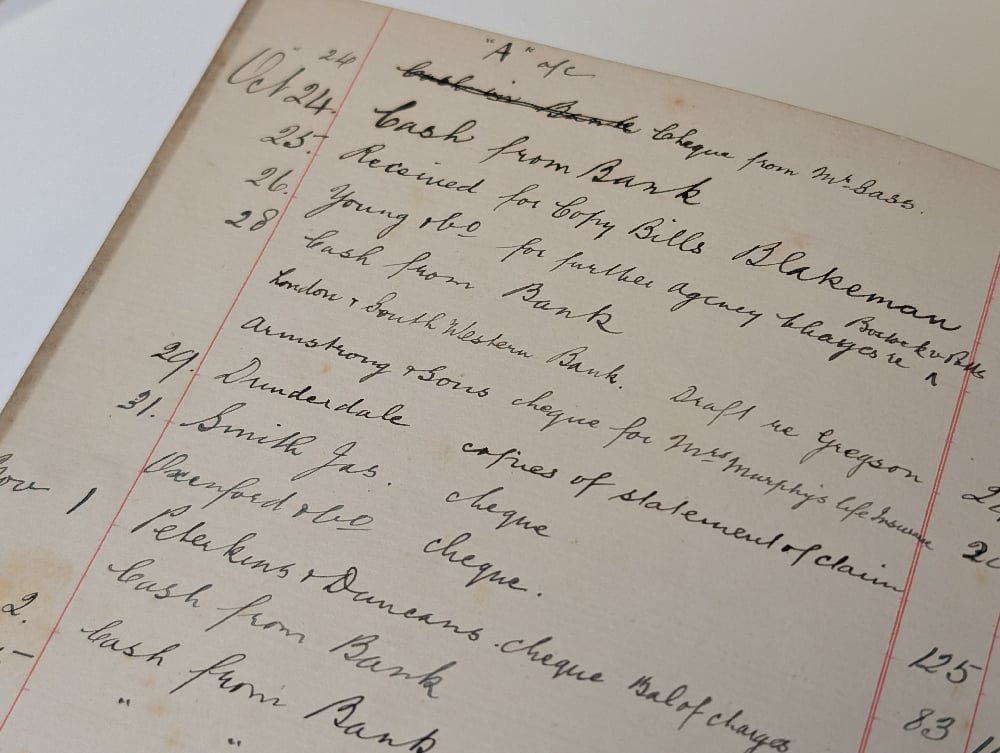 "A" a/c
" 24 Cash in Bank Cheque from Mr. Sass.
Oct 24. Cash from Bank
25. Received for Copy Bills Blakeman
26. Young & Co for further agency charges re Bostock v
28 Cash from Bank
London & South Western Bank. Draft re Gregson 2
Armstrong & Sons cheque for Mrs Murphy's life Insurance 2
29. Dunderdale copies of statement of claim
31. Smith Jas. cheque
Oxenford & Co cheque.
Nov 1 Peterkins & Duncans cheque Bal of charges 125
Cash from Bank 83
2. Cash from Bank
" "